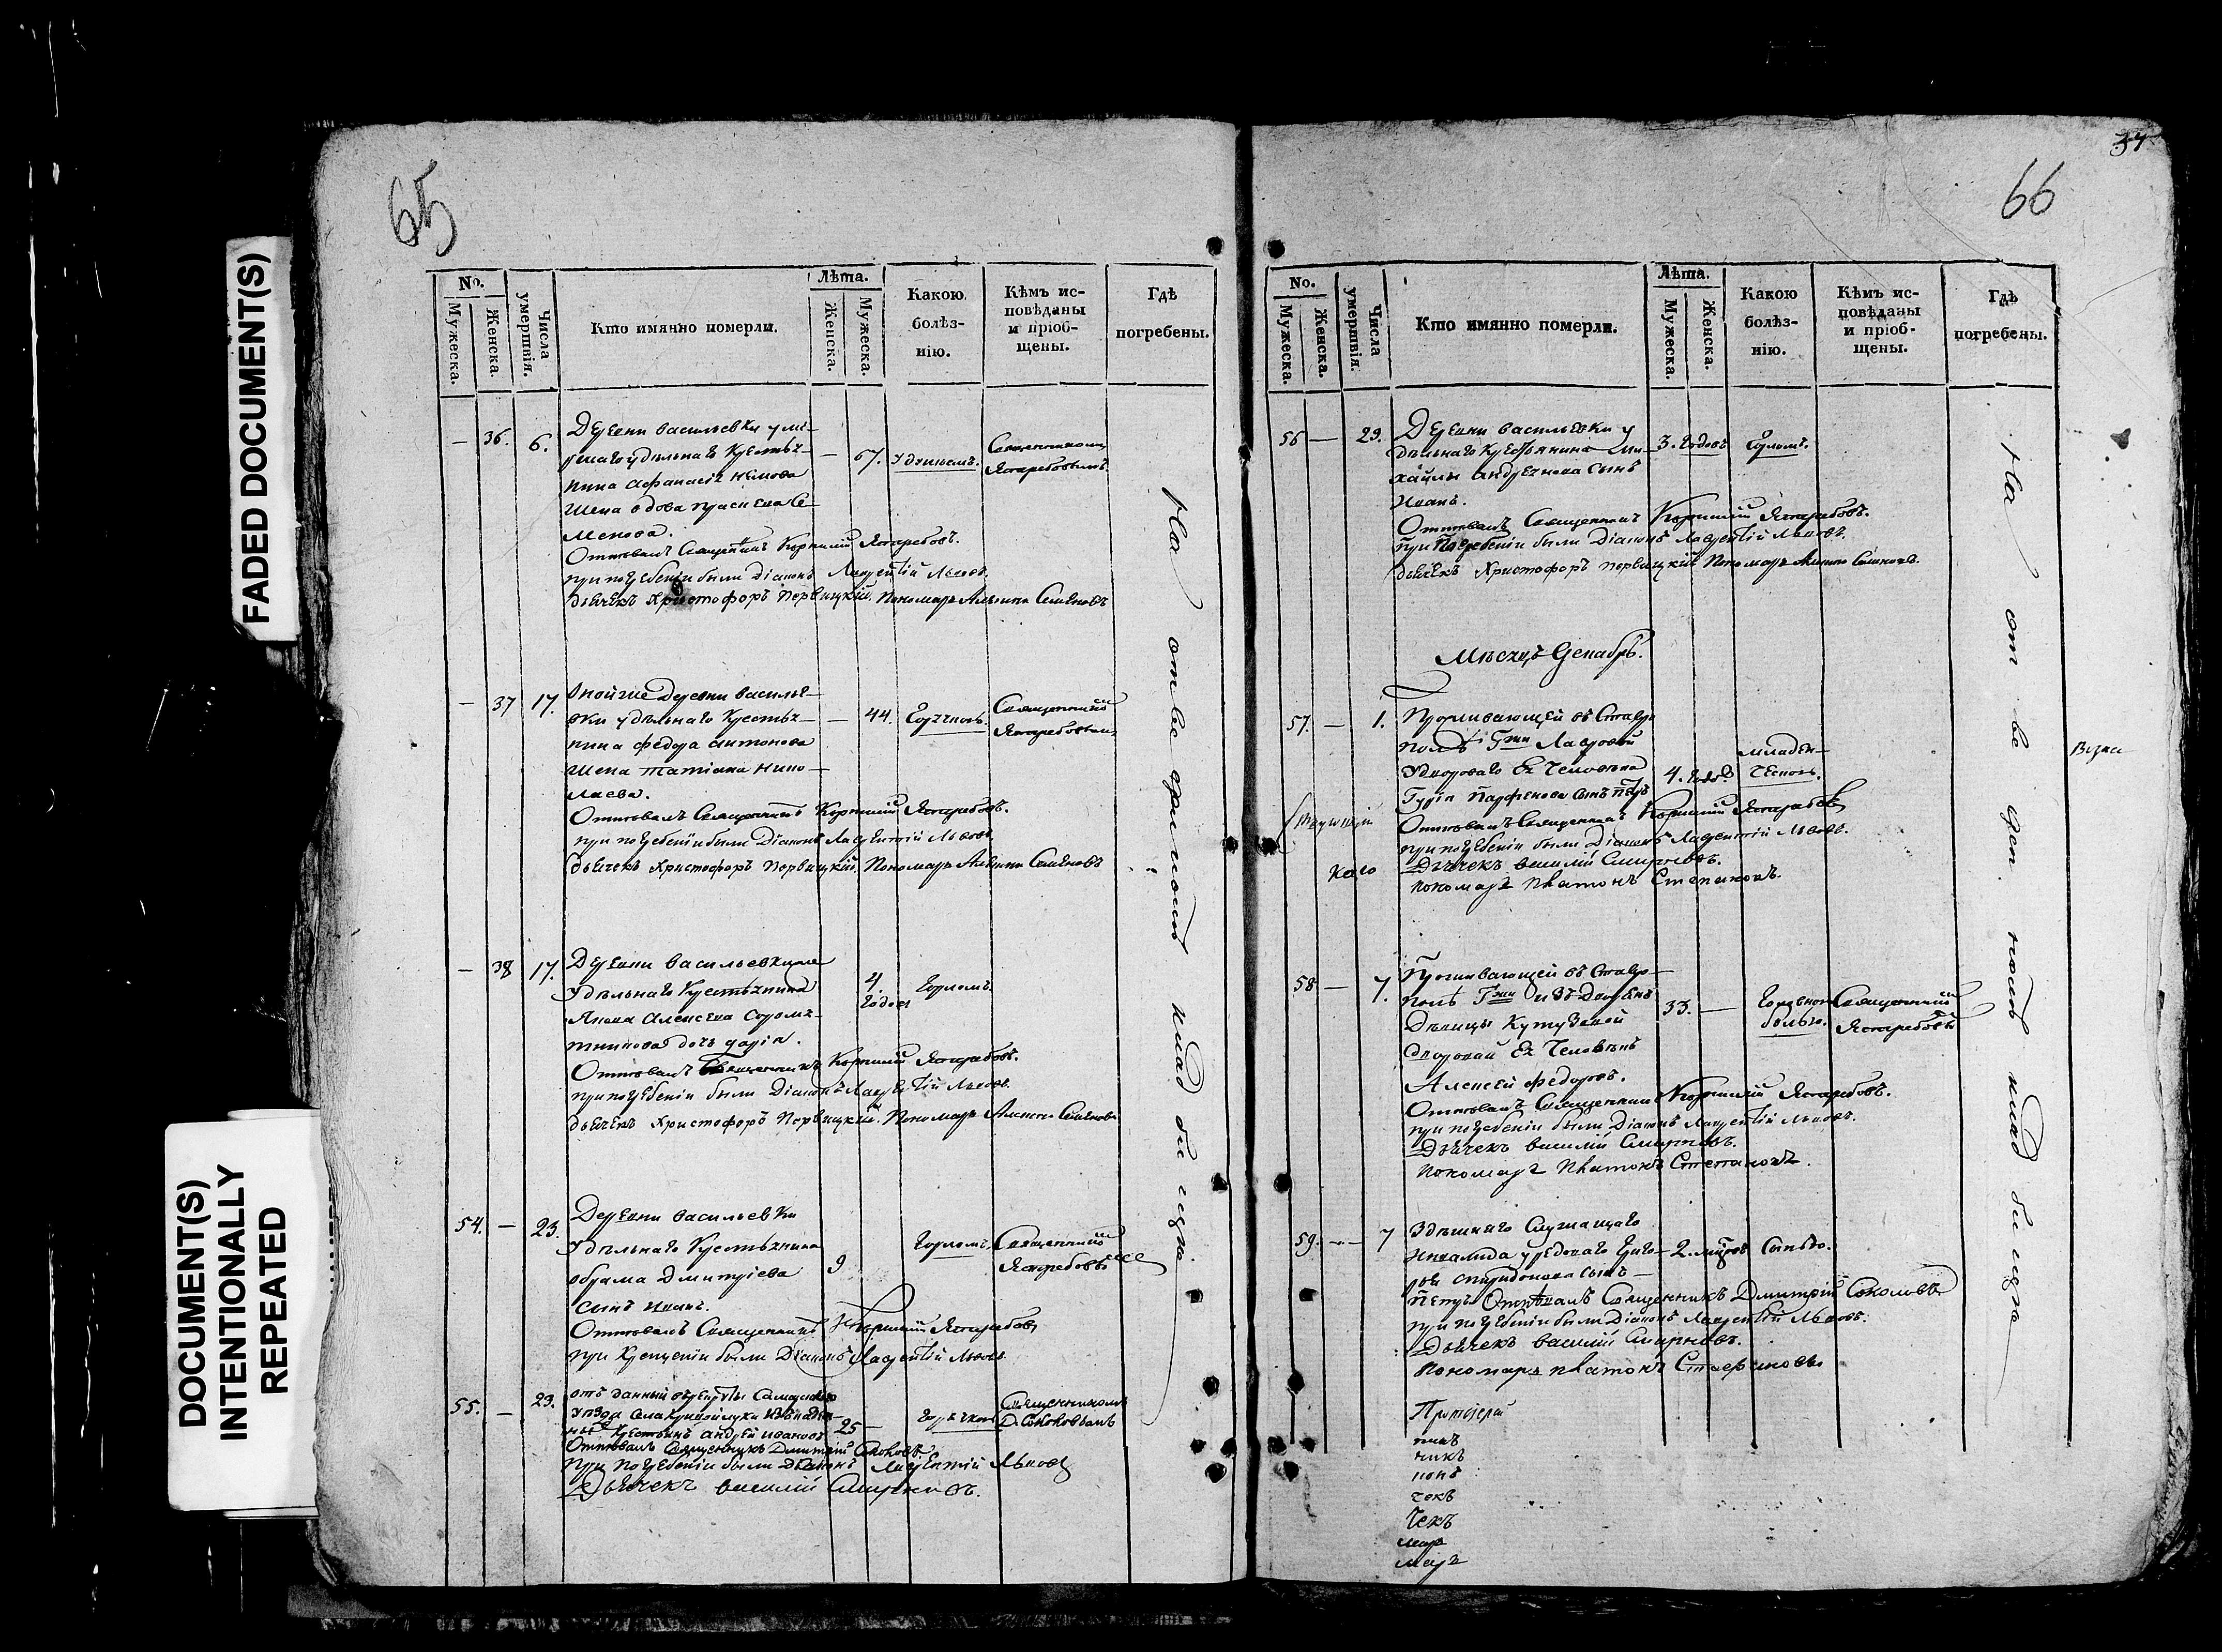 FADED DOCUMENT(S)
DOCUMENT(S)
INTENTIONALLY
REPEATED
65
No.
Мужеска.
Женска.
Числа
умершвія.
Кто имянно померли.
Лѣта.
Женска.
Мужеска.
Какою
болѣз-
нію.
Кѣмъ ис-
повѣданы
и пріоб-
щены.
Гдѣ
погребены.
— 36. 6.
Деревни васильевки
удѣльнаго Крестья-
нина афанасія
жена вдова Се-
менова.
— 67. удушьемъ.
Священникомъ
Ястребовымъ.
Отпѣвалъ Священникъ Корнилій Ястребовъ.
при погребеніи были Діаконъ Лаврентій Львовъ.
дьячекъ Христофоръ Первицкій. Пономарь Семеновъ
— 37 17.
деревни василье-
вки удѣльнаго Крестья-
нина федора антонова
жена татіана Нико-
лаева.
— 44. Горячкою.
Священникомъ
Ястребовымъ
Отпѣвалъ Священникъ Корнилій Ястребовъ.
при погребеніи были Діаконъ Лаврентій Львовъ
дьячекъ Христофоръ Первицкій. Пономарь Семеновъ
— 38 17.
Деревни васильевки
Удѣльнаго Крестьянина
Якова Алексеева
дочь дарія.
4.
Годовъ
Горломъ
Отпѣвалъ Священникъ Корнилій Ястребовъ.
при погребеніи были Діаконъ Лаврентій Львовъ.
дьячекъ Христофоръ Первицкій. Пономарь Семеновъ
54. — 23.
Деревни васильевки
Удѣльнаго Крестьянина
абрама Дмитріева
сынъ Иванъ.
9
Горломъ.
Священникомъ
Ястребовымъ
Отпѣвалъ Священникъ Корнилій Ястребовъ
при Крещеніи были Діаконъ Лаврентій Львовъ
55. — 23.
данный
уѣзда
Крестьянъ андрей ивановъ
25 —
Горячкою
Священникомъ
Д. Соколовымъ
Отпѣвалъ Священникъ Дмитрій Соколовъ
При погребеніи были Діаконъ Лаврентій Львовъ
Дьячекъ василій Смирновъ.
На отведенномъ кладбищѣ
34
66
No.
Мужеска.
Женска.
Числа
умершвія.
Кто имянно померли.
Лѣта.
Мужеска.
Женска.
Какою
болѣз-
нію.
Кѣмъ ис-
повѣданы
и пріоб-
щены.
Гдѣ
погребены.
56 — 29.
Деревни васильевки у
дѣльнаго Крестьянина ми-
хайлы андреянова сынъ
Иванъ.
3. Годовъ
Горломъ.
Отпѣвалъ Священникъ Корнилій Ястребовъ.
при Погребеніи были Діаконъ Лаврентій Львовъ.
дьячекъ Христофоръ Первицкій Пономарь Семеновъ.
Мѣсяцъ Декабрь.
57. — 1.
Проживающей въ Ставро
полѣ Гжи Лавровой
Удвороваго Ея Человѣка
Гурія Парфенова сынъ Петръ
4. Года
младен-
ческою.
Отпѣвалъ Священникъ Корнилій Ястребовъ
при погребеніи были Діаконъ Лаврентій Львовъ.
Дьячекъ василій Смирновъ.
пономарь платонъ Степановъ.
каго
58 — 7.
Проживающей въ Ставро-
полѣ Гжи изъ Дворянъ
Дѣвицы Кутузовой
дворовой Ея Человѣкъ
Алексей федоровъ.
33. —
Головною
болью.
Священникомъ
Ястребовымъ
Отпѣвалъ Священникъ Корнилій Ястребовъ.
при погребеніи были Діаконъ Лаврентій Львовъ.
Дьячекъ василій Смирновъ.
пономарь платонъ Степановъ.
59. — 7
Здѣшняго Служащаго
Инвалида рядоваго Григо-
рія спиридонова сынъ
Петръ
2.
Сыпью.
Отпѣвалъ Священникъ Дмитрій Соколовъ
при погребеніи были Діаконъ Лаврентій Львовъ.
Дьячекъ василій Смирновъ.
пономарь платонъ Степановъ
Протоіерей
никъ
конъ
чекъ
Чекъ
марь
марь
На отведенномъ кладбищѣ